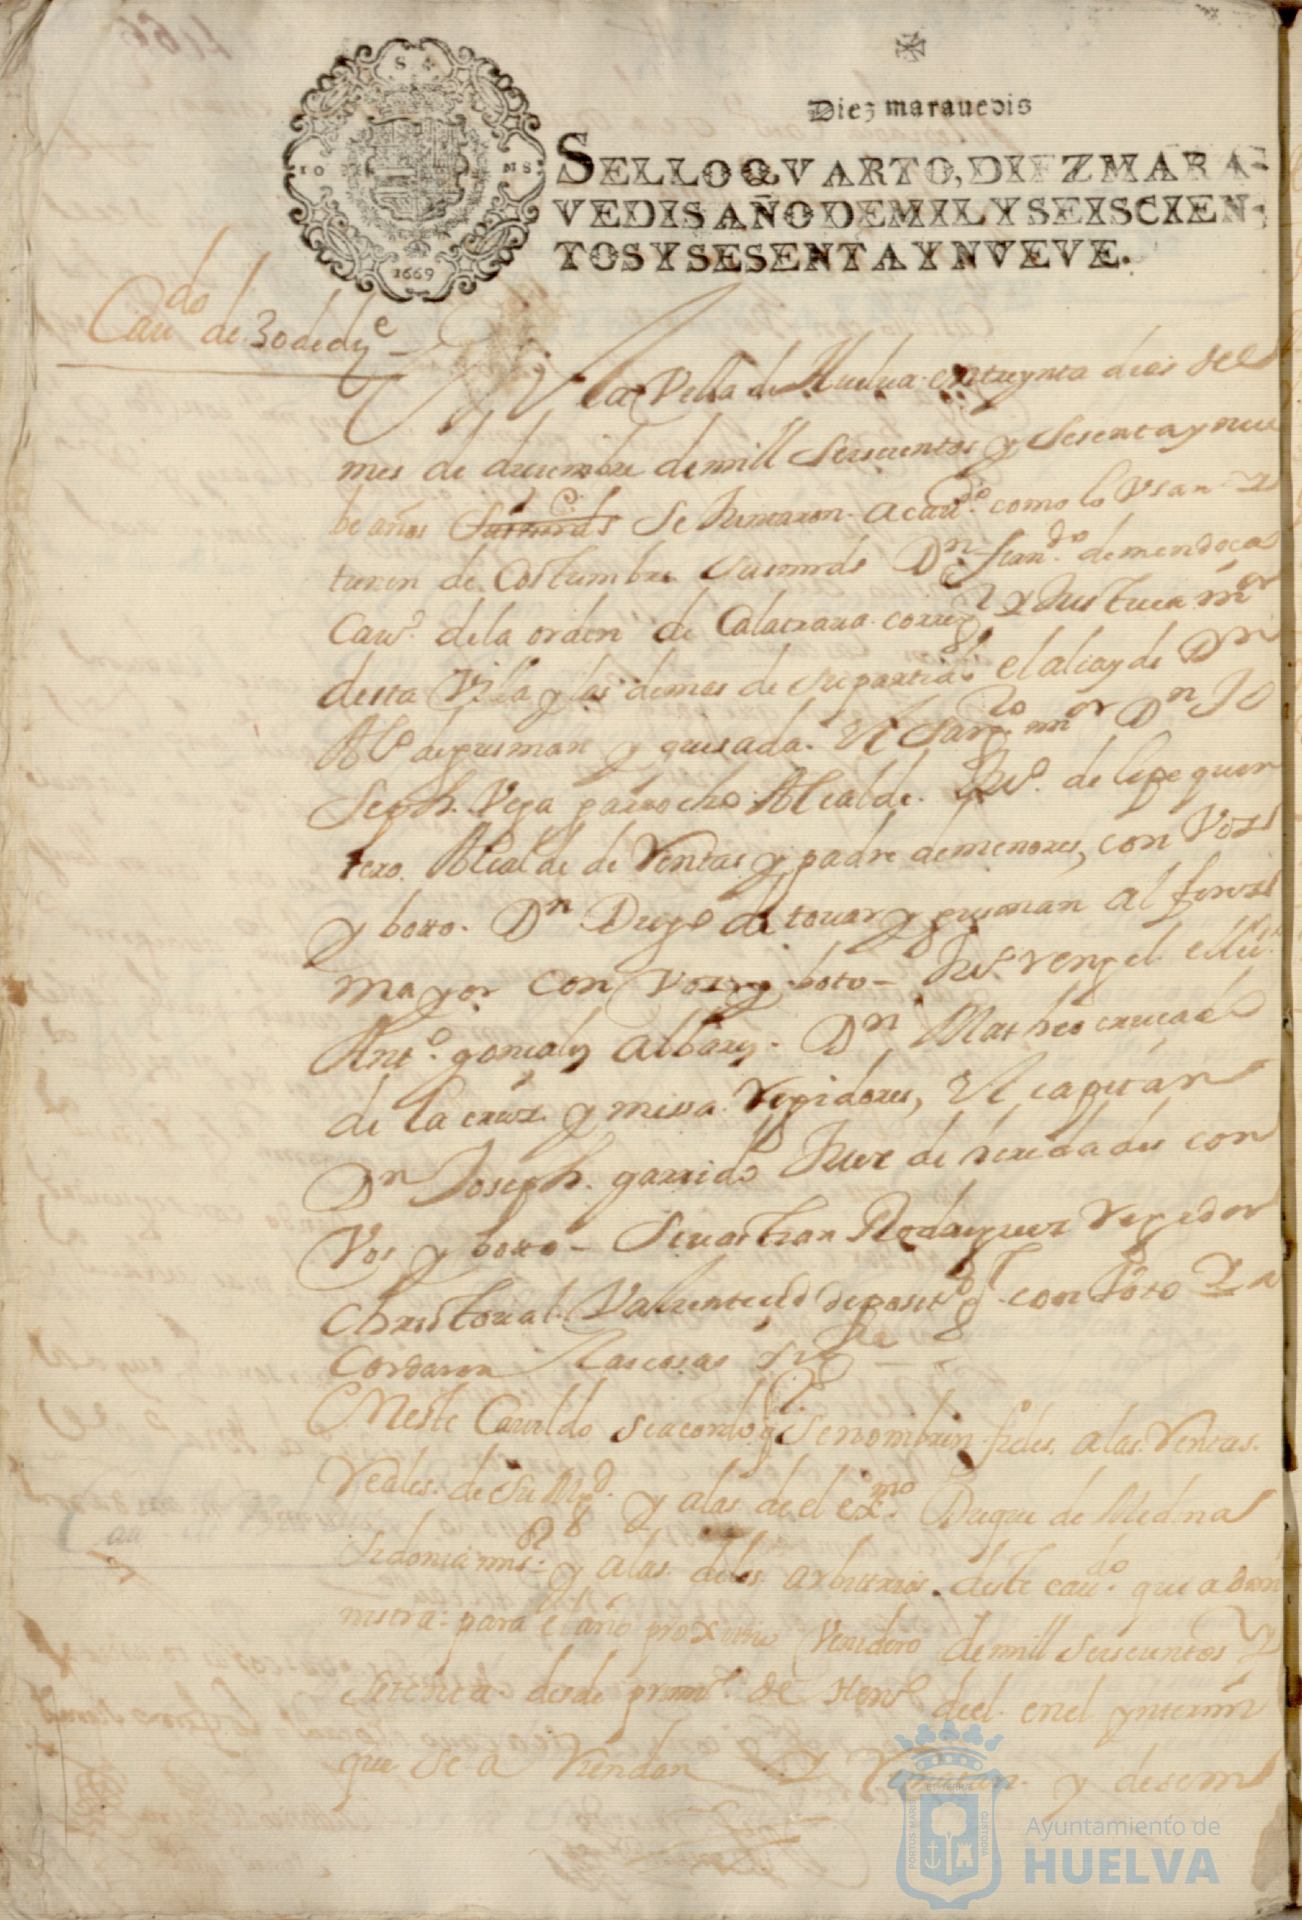 Diez marauedis
SELLO QVARTO, DIEZ MARA-
VEDIS AÑO DE MIL Y SEISCIEN-
TOS Y SESENTA Y NVEVE.
1669
Caudo de 30 de dice
En la Villa de Huelua en treynta dias del
mes de diciembre de mill seiscientos y sesenta y nue
be años se Juntaron a caudo como lo Vsan y
tienen de Costumbre sus mrds Dn ferando de mendoça
Cauo de la orden de Calatraua corregor y Justicia mor
desta Villa y las demas de su partido el alcayde Dn
Alo de gusman y quesada. El sargto mor Dn Jo
Seph. Vega garrocho Alcalde. Juo de lepe quin
tero Alcalde de Ventas y padre de menores, con Voz
y boto. Dn Diego de touar y gusman alferez
mayor con Voz y boto - Juo rengel
Anto gonçales albares. Dn Matheo
de la cruz y missa Regidores, El capitan
Dn Joseph. garrido Juez de heredades con
Vos y boto - Seuastian Rodriguez Regidor
Christoual Valiente depositro gl con Voto y a
cordaron las cosas sigtes
En este Cauildo se acordo q se nombren fieles a las Ventas
Reales de su Magd y a las de el exmo Duque de Medina
Sidonia mi sr y a las de los arbitrios deste caudo que admi
nistra para el año proximo Venidero de mill seiscientos y
setenta desde primo de henero del en el ynterin
que se a Riendan y Rematan y desem
PORTUS MARIS ET TERRAE CUSTODIA
Ayuntamiento de
HUELVA